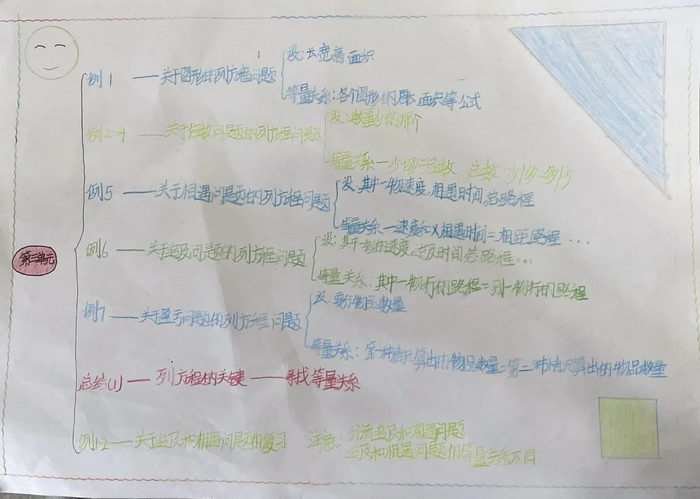 第三单元
例1——关于图形的列方程问题
设:长宽高面积
等量关系:各个图形的周长、面积等公式
例2-4——关于倍数问题的列方程问题
设:数量少的那个
等量关系:一少份=倍数 总数
例5——关于相遇问题的列方程问题
设:其中一物速度、相遇时间、总路程
等量关系:速度和×相遇时间=相距路程…
例6——关于追及问题的列方程问题
设:其中一物的速度、追及时间、总路程…
等量关系:其中一物行的路程=另一物行的路程
例7——关于盈亏问题的列方程问题
设:数量
等量关系:第一种方法算出的物品数量=第二种方法算出的物品数量
总结(1)——列方程的关键——寻找等量关系
例1-2——关于追及和相遇问题的复习
注意:分清追及和相遇问题
追及和相遇问题的等量关系不同